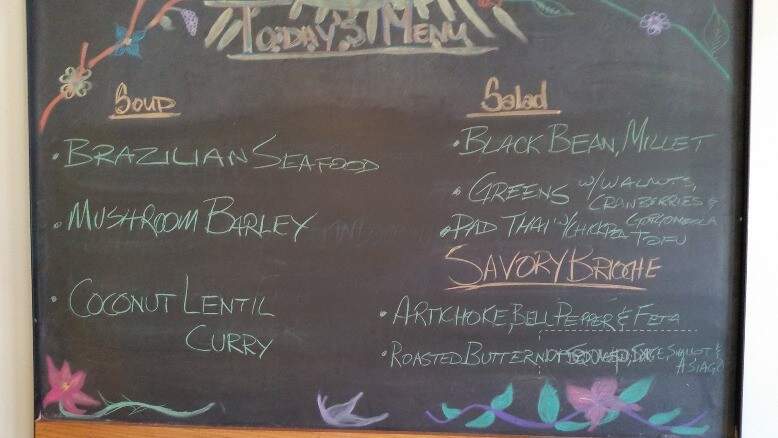 Today's Menu
Soup
• Brazilian Seafood
• Mushroom Barley
• Coconut Lentil
Curry
Salad
• Black Bean, Millet
• Greens w/ Walnuts,
Cranberries &
Gorgonzola
• Pad Thai w/ Chickpea Tofu
Savory Brioche
• Artichoke, Bell Pepper & Feta
• Roasted Butternut Sage, Shallot &
Asiago